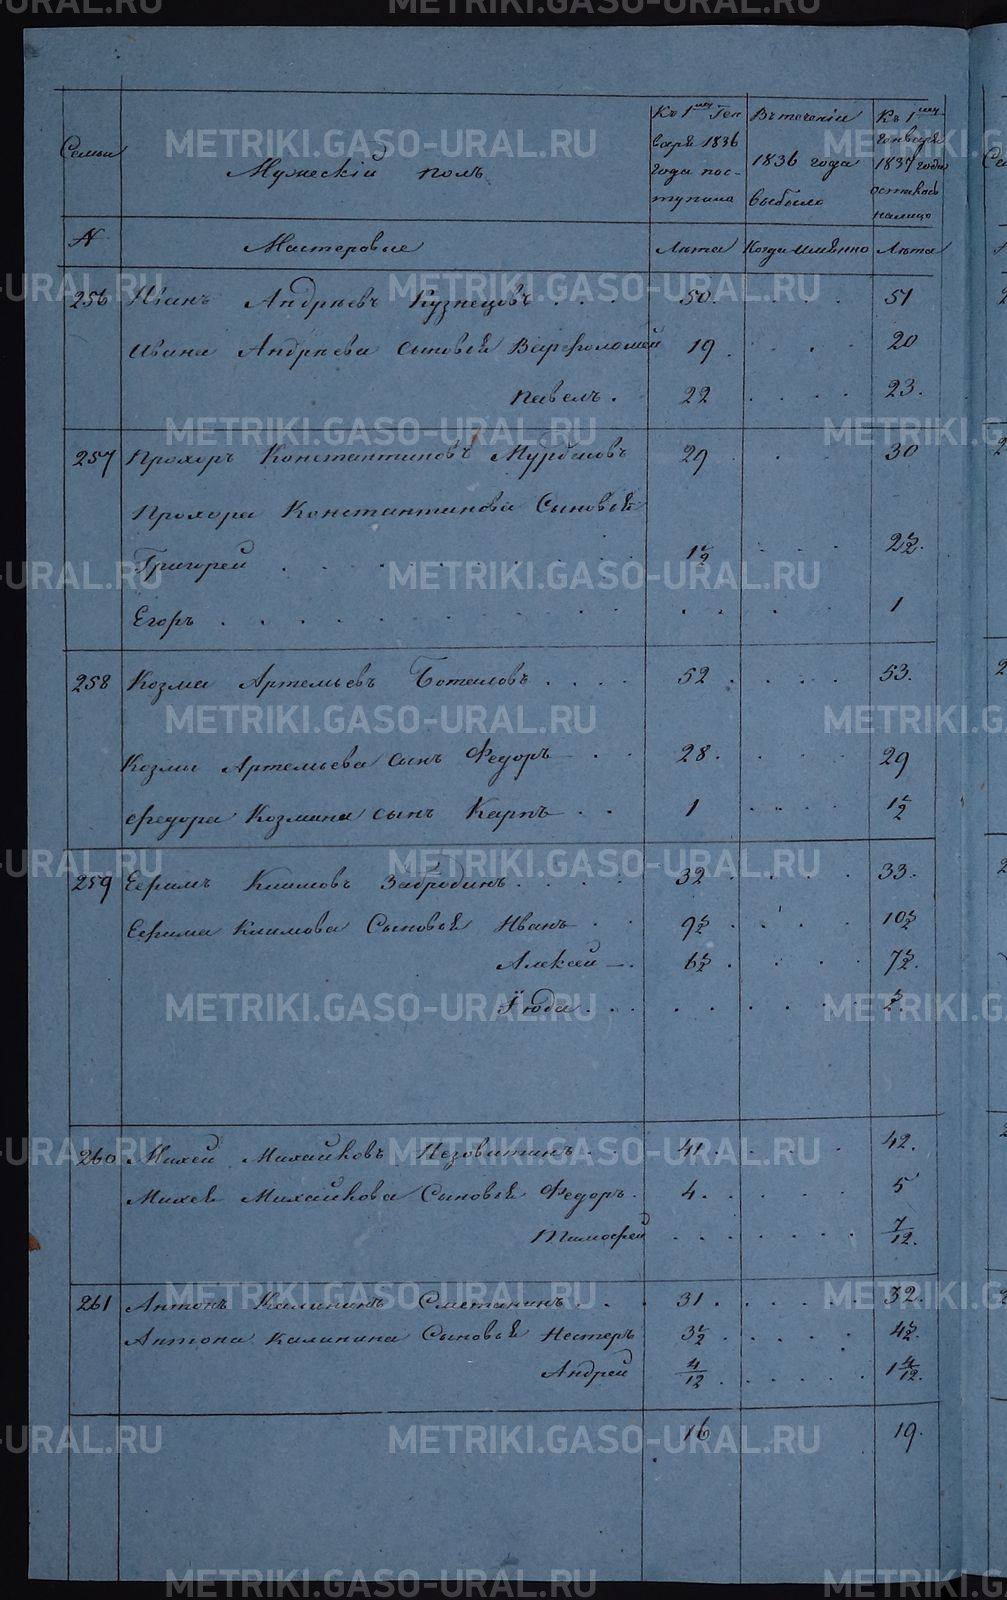 Семьи
Мужескiй полъ
Къ 1му Ген
варя 1836
года пос-
тупило
Въ теченiи
1836 года
выбыло
Къ 1му
генваря
1837 года
осталось
налицо
№ Мастеровые Лѣта Когда имянно Лѣта
256 Иванъ Андрѣевъ Кузнецовъ . . . 50. . . . 51
Ивана Андрѣева сыновья Варфоломей 19 . . . . 20
Павелъ . 22 . . . . 23.
257 Прохоръ Константиновъ 29 . . . 30
Прохора Константинова Сыновья
Григорей . . . . . . . 1½ . . . . 2½.
Егоръ . . . . . . . . . . . . . . 1
258 Козма Артемьевъ . . . . 52 . . . . 53.
Козмы Артемьева сынъ Федоръ . . 28 . . . . 29
Федора Козмина сынъ Карпъ . . 1 . . . . 1½
259 Ефимъ Климовъ Забродинъ . . . . 32 . . . . 33.
Ефима Климова Сыновья Иванъ . . 9½ . . . 10½
Алексей —. 6½ . . . . 7½.
Iюда . . . . . . . . ½.
260 Михей Михайловъ . 41 . . . . . 42.
Михея Михайлова Сыновья Федоръ. 4 . . . . . 5
Тимофей . . . . . . . 7/12.
261 Антонъ Калининъ Сметанинъ . . . 31 . . . . . 32.
Антона Калинина Сыновья Нестеръ 3½ . . . . . 4½.
Андрей 4/12 . . . . . . 1 4/12.
16 19.
METRIKI.GASO-URAL.RU